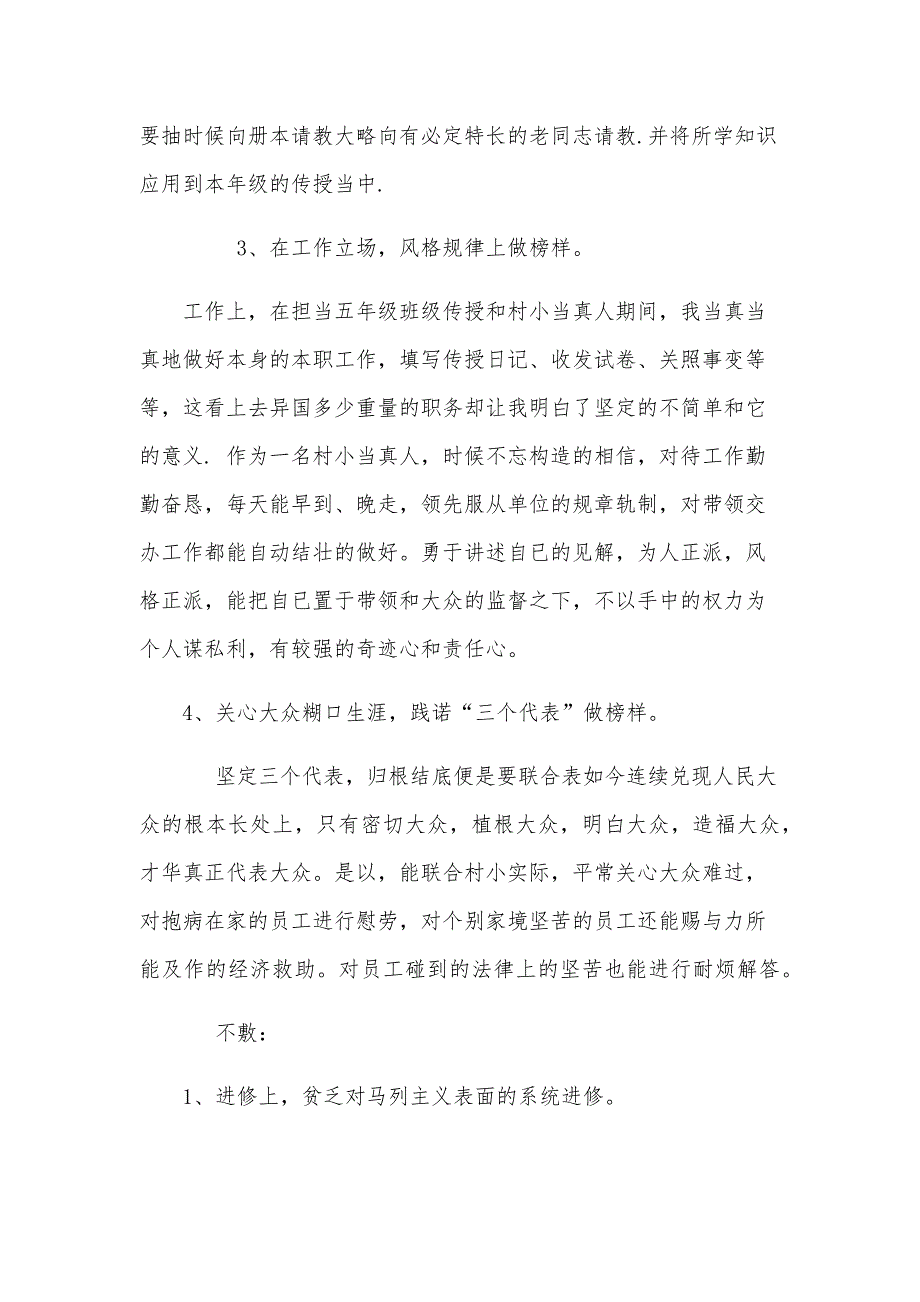 要抽时候向册本请教大略向有必定特长的老同志请教.并将所学知识
应用到本年级的传授当中.
3、在工作立场，风格规律上做榜样。
工作上，在担当五年级班级传授和村小当真人期间，我当真当
真地做好本身的本职工作，填写传授日记、收发试卷、关照事变等
等，这看上去异国多少重量的职务却让我明白了坚定的不简单和它
的意义. 作为一名村小当真人，时候不忘构造的相信，对待工作勤
勤奋恳，每天能早到、晚走，领先服从单位的规章轨制，对带领交
办工作都能自动结壮的做好。勇于讲述自已的见解，为人正派，风
格正派，能把自已置于带领和大众的监督之下，不以手中的权力为
个人谋私利，有较强的奇迹心和责任心。
4、关心大众糊口生涯，践诺“三个代表”做榜样。
坚定三个代表，归根结底便是要联合表如今连续兑现人民大
众的根本长处上，只有密切大众，植根大众，明白大众，造福大众，
才华真正代表大众。是以，能联合村小实际，平常关心大众难过，
对抱病在家的员工进行慰劳，对个别家境坚苦的员工还能赐与力所
能及作的经济救助。对员工碰到的法律上的坚苦也能进行耐烦解答。
不敷：
1、进修上，贫乏对马列主义表面的系统进修。